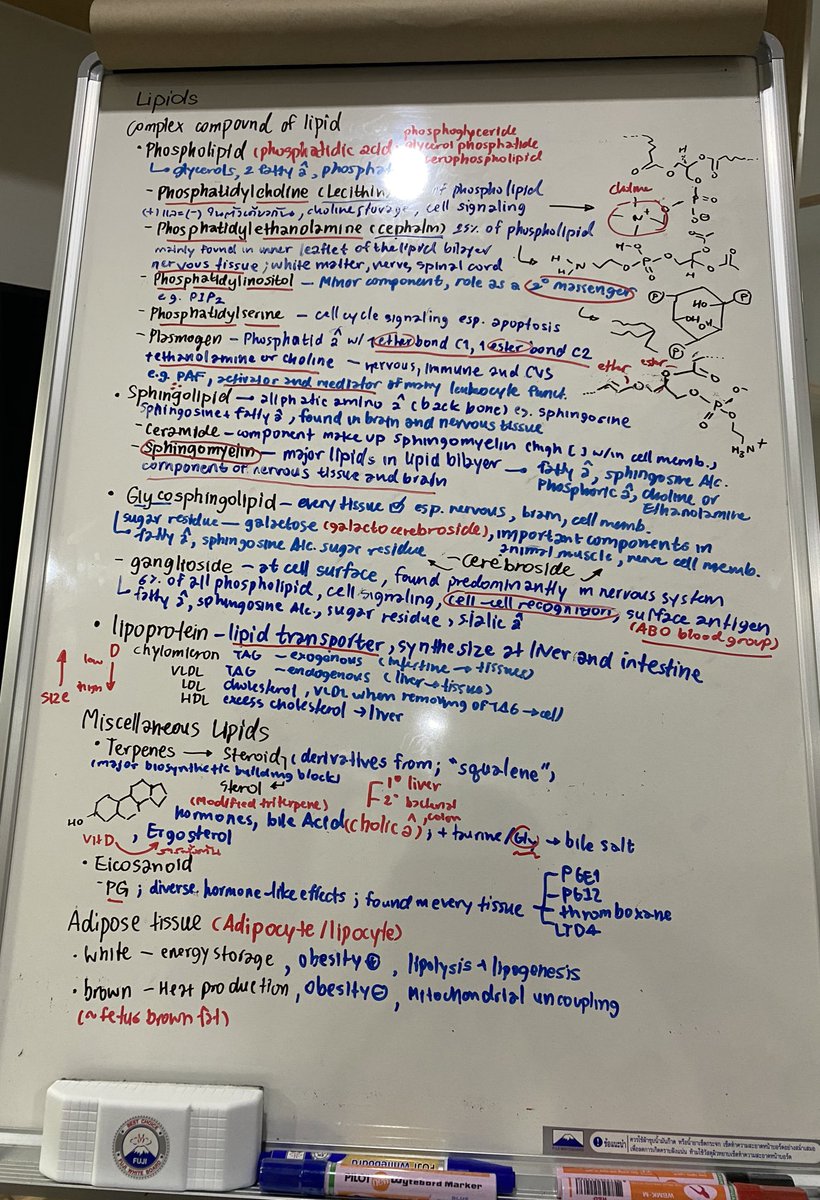 Lipids
Complex compound of lipid
phosphoglyceride
• Phospholipid (phosphatidic acid, glycerol phosphatide
cerophospholipid
↳ glycerols, 2 fatty â, phosphat
- Phosphatidylcholine (Lecithin of phospholipid
(+) และ (-) , choline storage, cell signaling →
choline
- Phosphatidyl ethanolamine (cephalin) 25% of phospholipid
mainly found in inner leaflet of the lipid bilayer
nervous tissue; white matter, nerve, spinal cord
- Phosphatidylinositol - Minor component, role as a 2° massenger
e.g. PIP2
- Phosphatidylserine - cell cycle signaling esp. apoptosis
- Plasmogen - Phosphatid â w/ 1 ether bond C1, 1 ester bond C2
+ ethanolamine or choline - nervous, immune and CVS
ether ester
e.g. PAF, activator and mediator of many leukocyte funct.
• Sphingolipid → aliphatic amino â (back bone) eg. sphingosine
sphingosine + fatty â, found in brain and nervous tissue
- Ceramide - component make up sphingomyelin (high [ ] w/in cell memb.,
- Sphingomyelin - major lipids in lipid bilayer → fatty â, sphingosine Alc.
component of nervous tissue and brain
Phosphoric â, choline or
Ethanolamine
• Glycosphingolipid - every tissue esp. nervous, brain, cell memb.
sugar residue - galactose (galactocerebroside), important components in
↳ fatty â, sphingosine Alc. sugar residue
animal muscle, nerve cell memb.
- Cerebroside
- ganglioside - at cell surface, found predominantly in nervous system
↳ 6% of all phospholipid, cell signaling, cell-cell recognition, surface antigen
fatty â, sphingosine Alc., sugar residue, sialic â
(ABO blood group)
• lipoprotein - lipid transporter, synthesize at liver and intestine
low D chylomicron TAG - exogenous (intertine → tissues)
VLDL TAG - endogenous (liver → tissues)
size high LDL cholesterol, VLDL when removing of TAG → cell
HDL excess cholesterol → liver
Miscellaneous Lipids
• Terpenes → Steroid, (derivatives from; "squalene",
(major biosynthetic building block)
sterol ↵
(Modified triterpene)
1° liver
2° bacterial
, colon
HO
hormones, bile Acid (cholic â); + taurine / Gly → bile salt
Vit D , Ergosterol
• Eicosanoid
- PG ; diverse, hormone-like effects ; found in every tissue
PGE1
PGI2
thromboxane
LTD4
Adipose tissue (Adipocyte / lipocyte)
• White - energy storage , obesity ⊕ , lipolysis + lipogenesis
• brown - Heat production , obesity ⊖ , Mitochondrial uncoupling
(~ fetus brown fat)
BEST CHOICE
FUJI
FUJI WHITE BOARD
FUJI
ข้อแนะนำ
FUJI Whiteboard
PILOT Wytebord Marker
BLUE
RED
WBMK-M